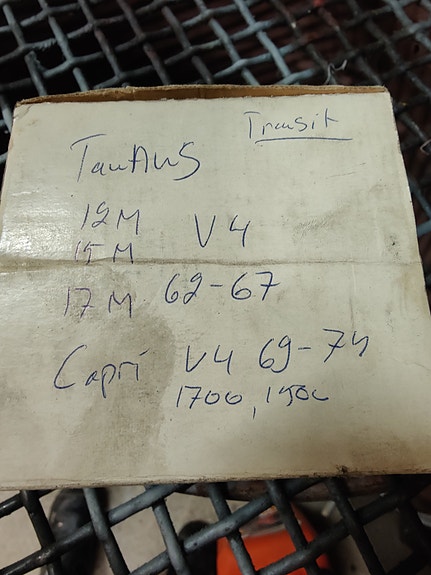 Transit
Taunus
12M
15M V4
17M 62-67
Capri V4 69-74
1700, 1500